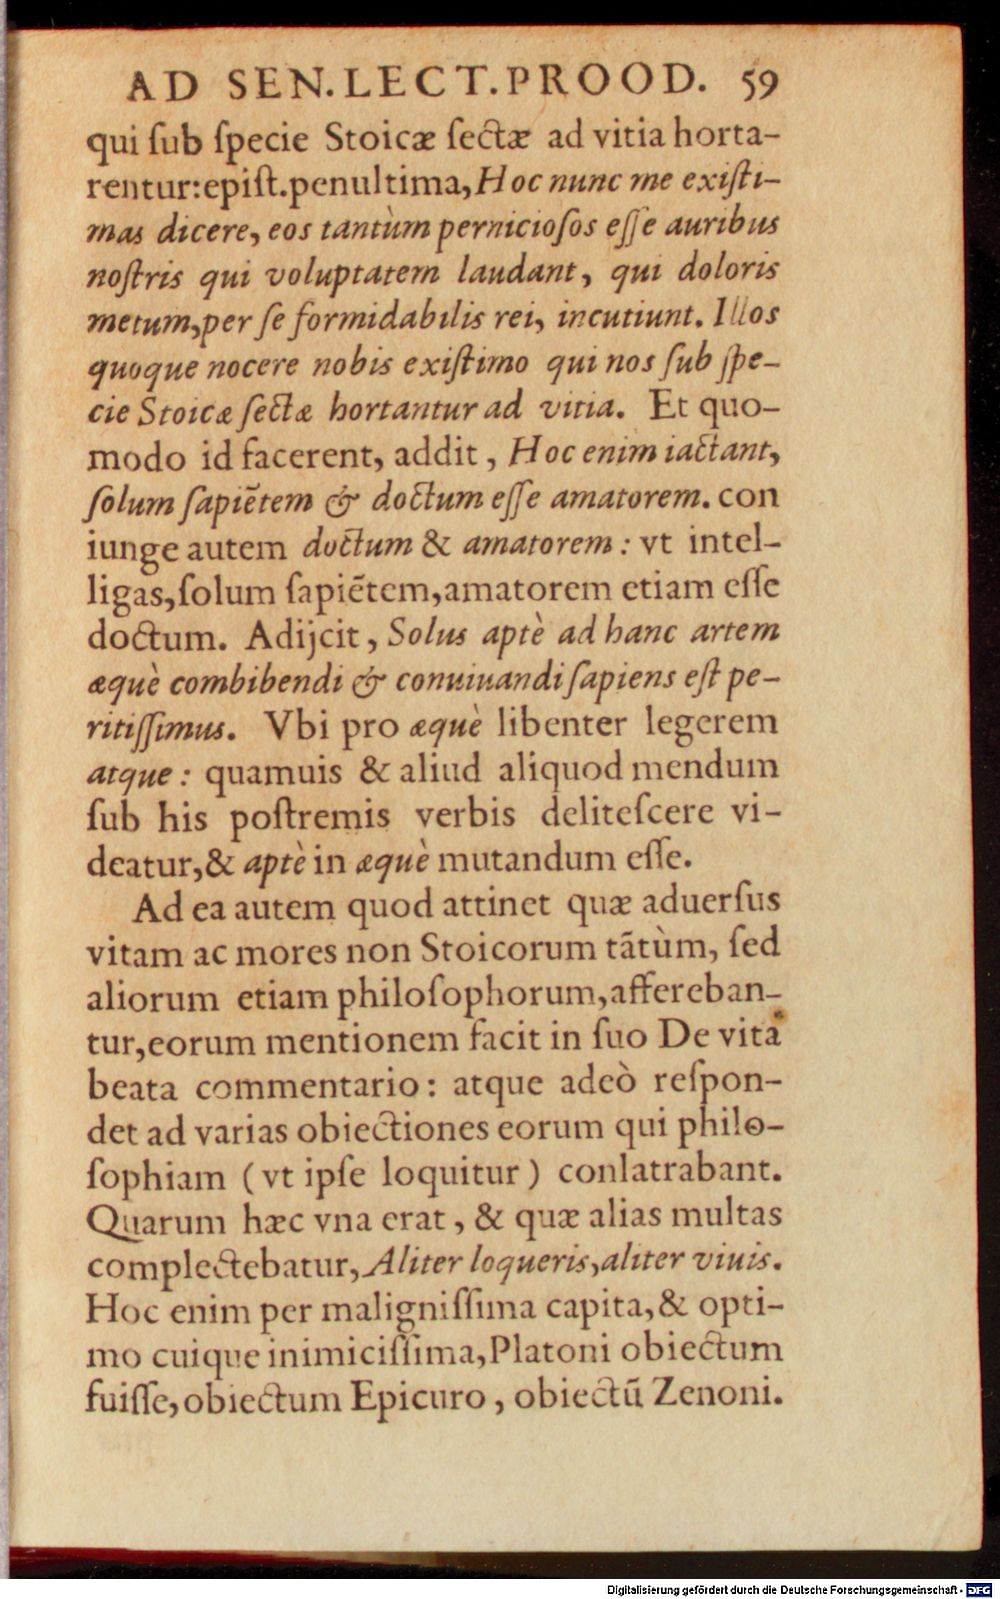 AD SEN. LECT. PROOD. 59
qui ſub ſpecie Stoicæ ſectæ ad vitia horta-
rentur: epiſt. penultima, Hoc nunc me exiſti-
mas dicere, eos tantùm pernicioſos eſſe auribus
noſtris qui voluptatem laudant, qui doloris
metum, per ſe formidabilis rei, incutiunt. Illos
quoque nocere nobis exiſtimo qui nos ſub ſpe-
cie Stoicæ ſectæ hortantur ad vitia. Et quo-
modo id facerent, addit, Hoc enim iactant,
ſolum ſapiẽtem & doctum eſſe amatorem. con
iunge autem doctum & amatorem: vt intel-
ligas, ſolum ſapiẽtem, amatorem etiam eſſe
doctum. Adijcit, Solus aptè ad hanc artem
æquè combibendi & conuiuandi ſapiens eſt pe-
ritiſſimus. Vbi pro æquè libenter legerem
atque: quamuis & aliud aliquod mendum
ſub his poſtremis verbis deliteſcere vi-
deatur, & aptè in æquè mutandum eſſe.
Ad ea autem quod attinet quæ aduerſus
vitam ac mores non Stoicorum tãtùm, ſed
aliorum etiam philoſophorum, affereban-
tur, eorum mentionem facit in ſuo De vita
beata commentario: atque adeò reſpon-
det ad varias obiectiones eorum qui philo-
ſophiam (vt ipſe loquitur) conlatrabant.
Quarum hæc vna erat, & quæ alias multas
complectebatur, Aliter loqueris, aliter viuis.
Hoc enim per maligniſſima capita, & opti-
mo cuique inimiciſſima, Platoni obiectum
fuiſſe, obiectum Epicuro, obiectũ Zenoni.
Digitalisierung gefördert durch die Deutsche Forschungsgemeinschaft - DFG